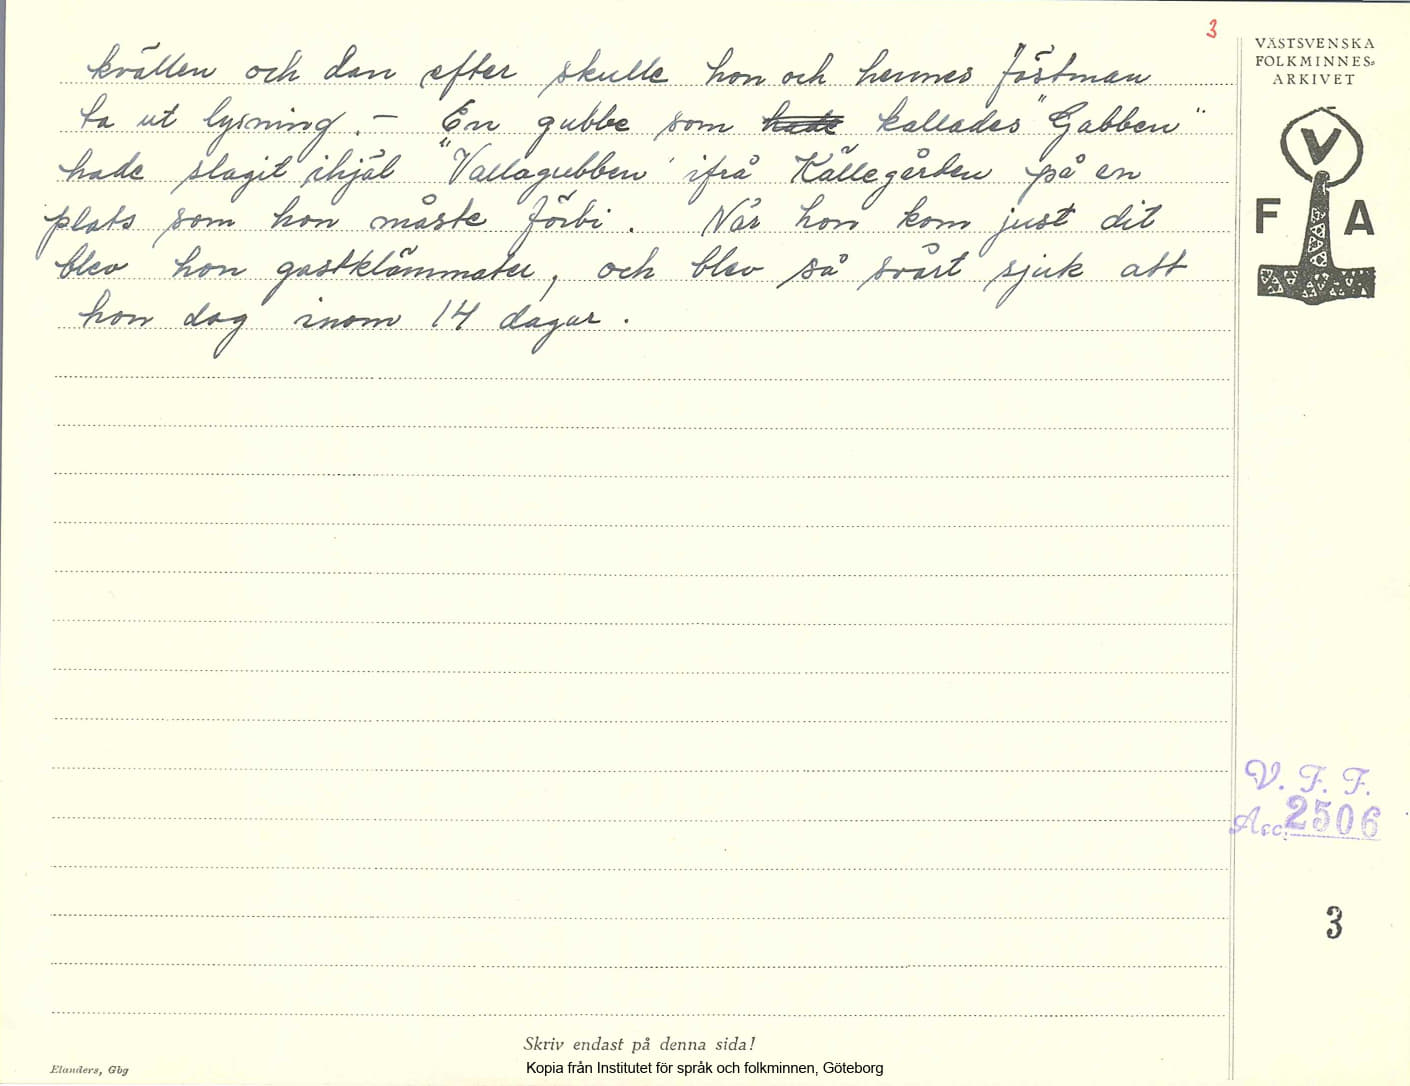 3
kvällen och dan efter skulle hon och hennes fästman
ta ut lysning. – En gubbe som hade kallades "Gabben"
hade slagit ihjäl "Vallagubben" ifrå Källegården på en
plats som hon måste förbi. När hon kom just dit
blev hon gastklämmater, och blev så svårt sjuk att
hon dog inom 14 dagar.
VÄSTSVENSKA
FOLKMINNES-
ARKIVET
V
F A
V. F. F.
Acc. 2506
3
Skriv endast på denna sida!
Elanders, Gbg
Kopia från Institutet för språk och folkminnen, Göteborg